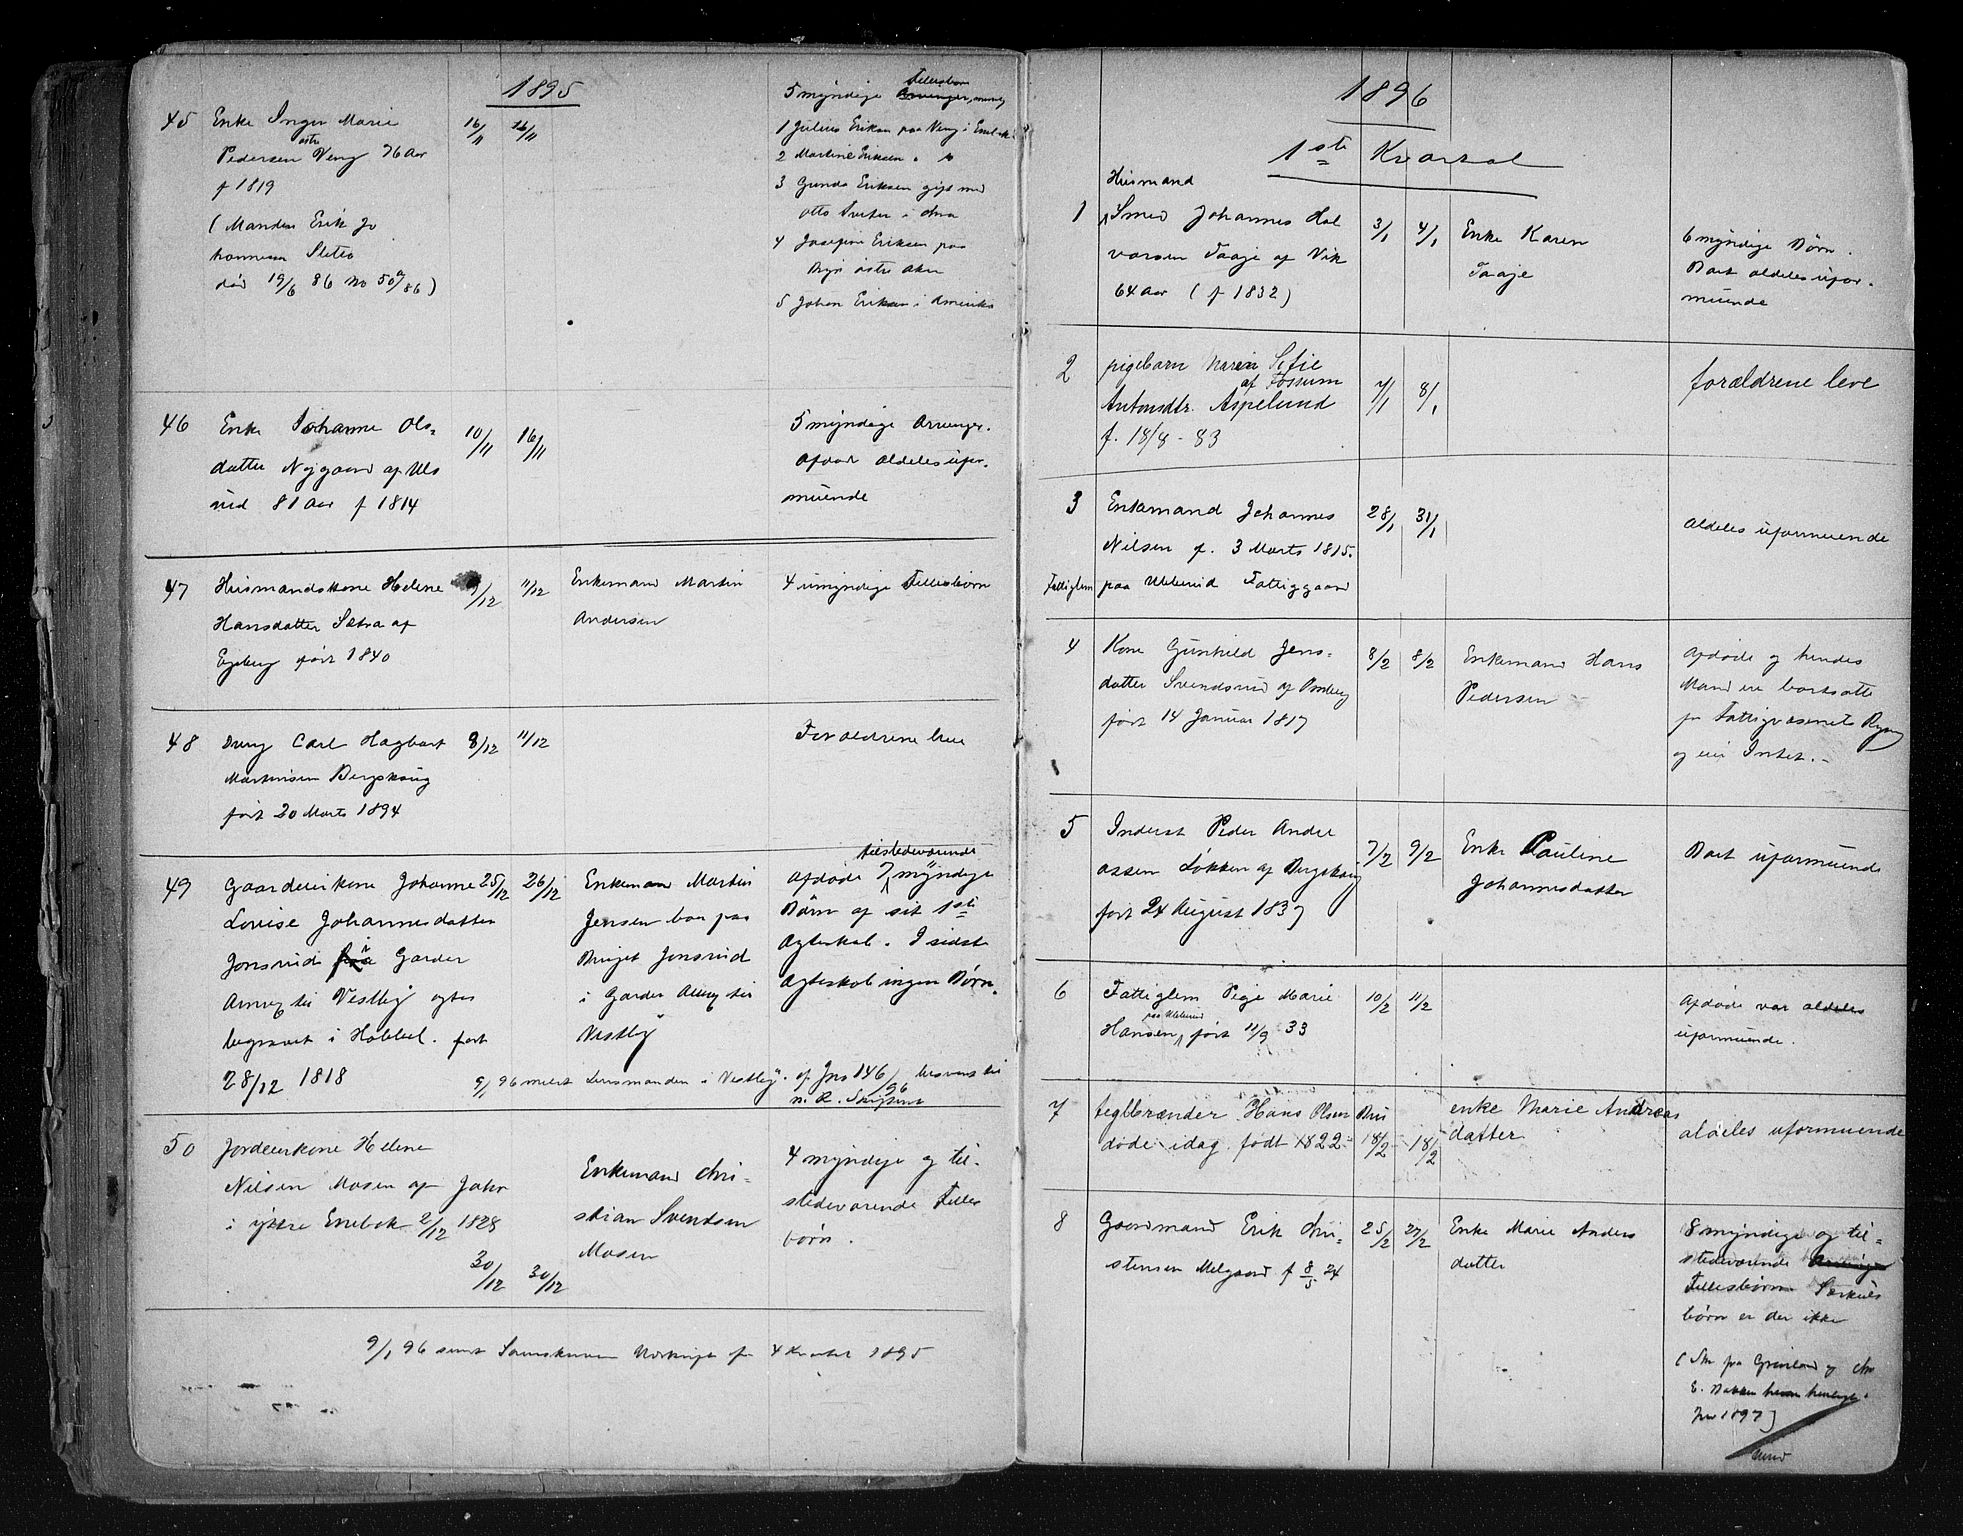 1895
45 Enke Inger Marie 16/11 16/11 5 myndige Fellesbørn
Pedersen østre Veng 76 Aar
f 1819
(Manden Erik Jo
hannesen
død 19/6 86 No 50 a/86)
1 Julius Eriksen paa Veng i Enebak
2 Martine Eriksen " "
3 Gunda Eriksen gift med
otto i
4 Josefine Eriksen paa
Bryn østre Aker
5 Johan Eriksen i Amerika
46 Enke Johanne Ols= 10/11 16/11 5 myndige Arvinger.
datter Nygaard af Uls afdøde aldeles ufor-
rud 81 Aar f 1814 muende
47 Husmandskone Helene 9/12 11/12 Enkemand Martin 4 umyndige Fellesbørn
Hansdatter Sætra af Andersen
født 1840
48 Dreng Carl Hagbart 8/12 11/12 Forældrene leve
Martinsen Bergskaug
født 20 Marts 1894
49 Gaardeierkone Johanne 25/12 26/12 Enkemand Martin afdøde 7 tilstedeværende myndige
Lovise Johannesdatter Jensen bor paa Børn af sit 1ste
Jonsrud i Garder Bruget Jonsrud Ægteskab. I sidste
Annex til Vestby i Garder Annex til Ægteskab ingen Børn.
begravet i Hobbøl. født Vestby
28/12 1818 9/1 96 meldt Lensmanden i Vestby. af Jno 146/96
50 Jordeierkone Helene
Nilsen Mosen af Enkemand Chri- 4 myndige og til-
i ytre Enebak 2/12 1828 stian Svendsen stedeværende Felles
30/12 30/12 Mosen børn.
9/1 96 sendt for 4 Kvartal 1895
1896
1ste Kvartal
Husmand
1 Smed Johannes Hal 3/1 4/1 Enke Karen 6 myndige Børn.
vorsen Taaje af Vik Taaje Boet aldeles ufor-
64 Aar (f 1832) muende
2 pigebarn Maren Sofie 7/1 8/1 forældrene leve
af Fossum
Antonsdtr. Aspelund
f. 18/8 - 83
3 Enkemand Johannes 28/1 31/1 aldeles uformuende
Nilsen f. 3 Marts 1815.
Fattiglem paa Ulvrud Fattiggaard
4 Kone Gunhild Jens- 8/2 8/2 Enkemand Hans Afdøde og hendes
datter Svendsrud af Pedersen Mand ere bortsatte
født 14 Januar 1817 for Fattigvæsenets Regn
og eier Intet.-
5 Inderst Peder Andre 7/2 9/2 Enke Pauline Boet uformuende
assen Løkken af Bergskaug Johannesdatter
født 24 August 1837
6 Fattiglem Pige Marie 10/2 11/2 Afdøde var aldeles
Hansen, født 11/9 33 uformuende.
7 teglbrænder Hans Olsen enke Marie Andreas
døde idag. født 1822 18/2 18/2 datter aldeles uformuende
8 Gaardmand Erik Chri- 25/2 27/2 Enke Marie Anders 8 myndige og til-
stensen Melgaard f 8/5 24 datter stedeværende
Fellesbørn Særkuls
børn er der ikke
(Se paa og
E. Bakken
Jno 1897)